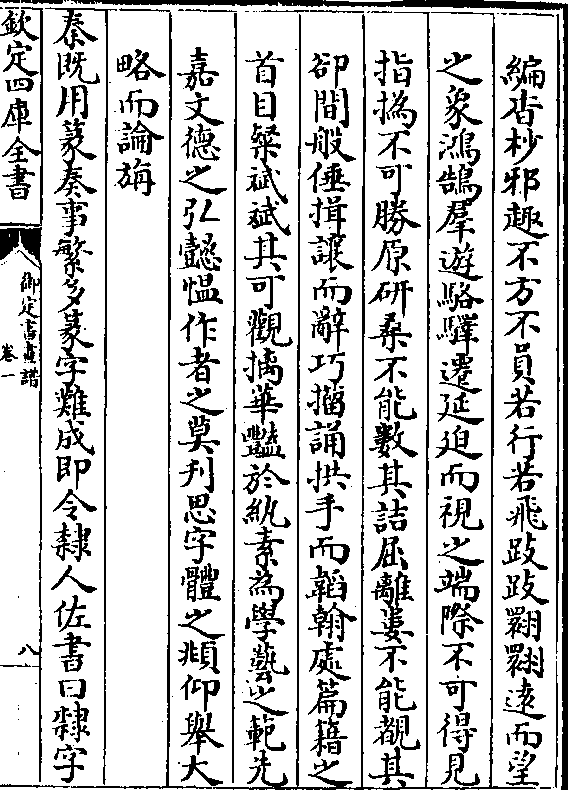 編杳杪邪趣不方不員若行若飛跂跂翾翾遠而望
之象鴻鵠羣遊駱驛遷延迫而視之端際不可得見
指撝不可勝原研桑不能數其詰屈離婁不能覩其
卻間般倕揖讓而辭巧誦拱手而韜翰處篇籍之
首目粲斌斌其可觀摛華豔於紈素為學藝之範先
嘉文德之弘懿愠作者之莫刋思字體之頫仰舉大
略而論旃
秦既用篆奏事繁多篆字難成即令隸人佐書曰隸字
欽定四庫全書
御定書畫譜
卷一
八